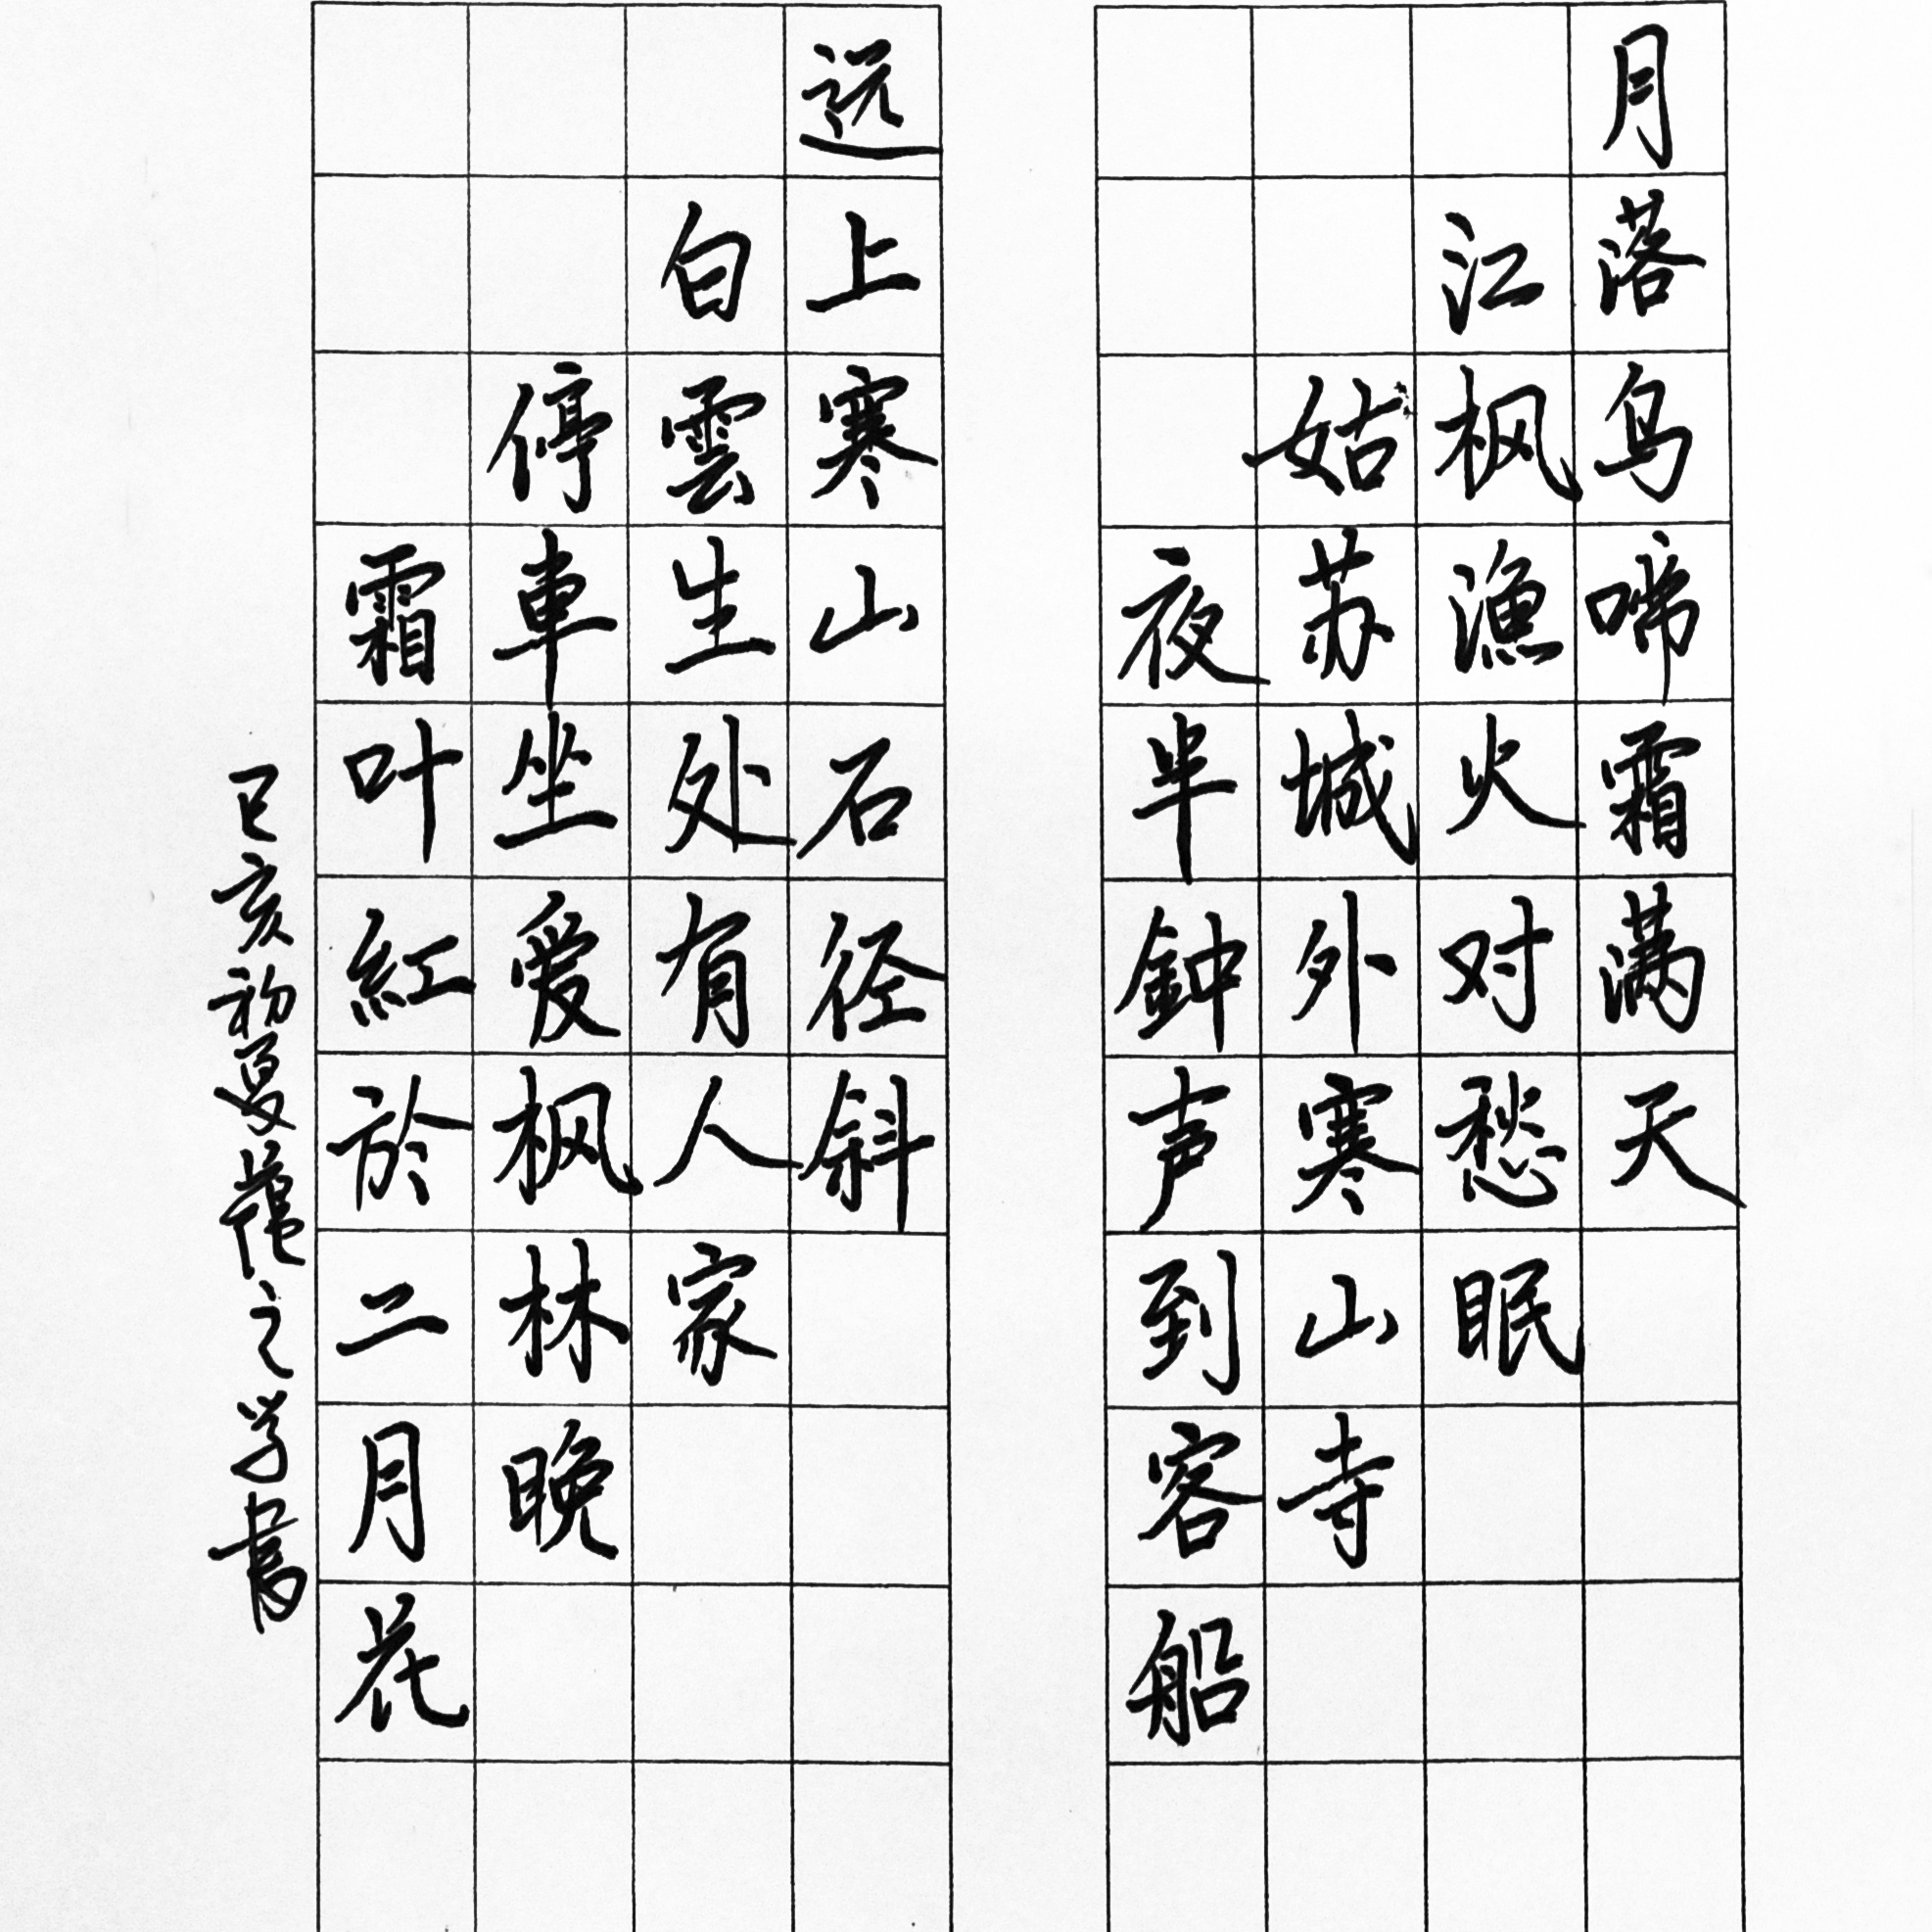 月落乌啼霜满天
江枫漁火对愁眠
姑苏城外寒山寺
夜半鈡声到客船
远上寒山石径斜
白雲生处有人家
停車坐爱枫林晚
霜叶紅於二月花
己亥初夏之学書